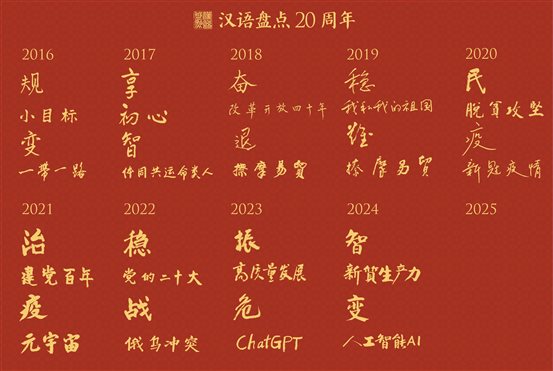 汉语盘点20周年
2016 2017 2018 2019 2020
规 享 奋 稳 民
小目标 初心 改革开放四十年 我和我的祖国 脱贫攻坚
变 智 退 难 疫
一带一路 体同共运命类人 摩擦易贸 摩擦易贸 新冠疫情
2021 2022 2023 2024 2025
治 稳 振 智
建党百年 党的二十大 高质量发展 新质生产力
疫 战 危 变
元宇宙 俄乌冲突 ChatGPT 人工智能AI